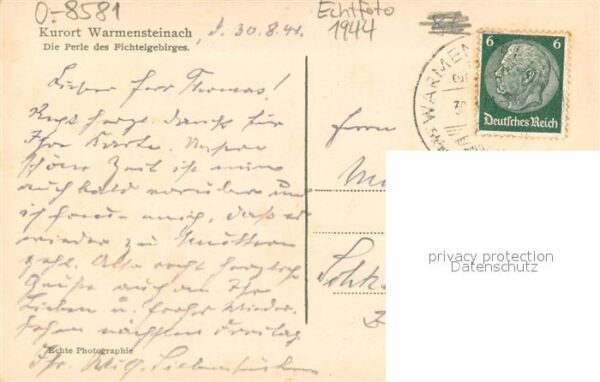 0-8581
Echtfoto
1944
Kurort Warmensteinach
Die Perle des Fichtelgebirges.
, 30.8.41.
6 6
Deutsches Reich
WARMEN
30
Lieber Herr Thomas!
Recht herzl. Dank für
Ihre Karte. Unsere
schöne Zeit ist nun
auch bald vorüber und
ich freue mich, daß es
wieder zu
geht. Also recht herzliche
Grüße auch an Ihre
Lieben u. frohes Wieder-
sehen nächsten Freitag
Ihr
Herrn
privacy protection
Datenschutz
Echte Photographie